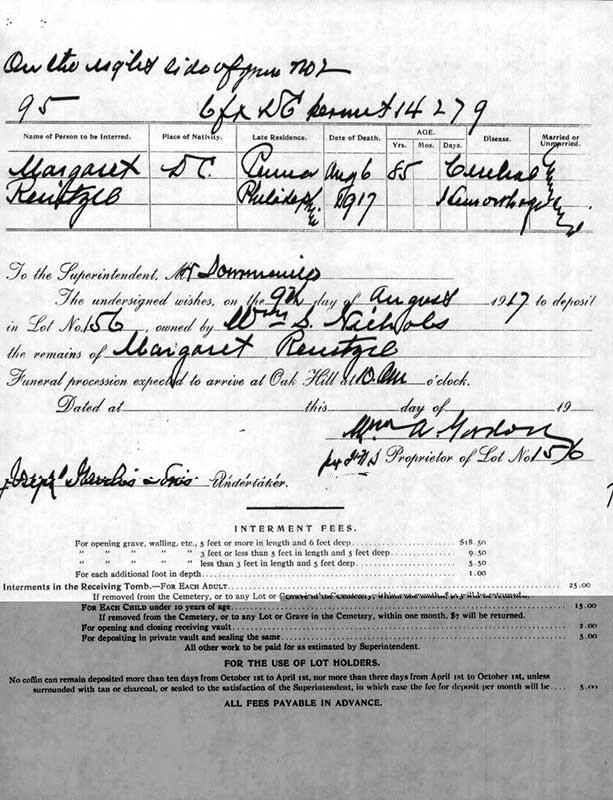 On the right side of grave No 2
95 Cfx DC permit 14279
Name of Person to be Interred. Place of Nativity. Late Residence. Date of Death. AGE. Disease. Married or Unmarried.
Yrs. Mos. Days.
Margaret DC. Penna Aug 6 85 Cerebral
Reutzel Philadelp 1917 Hemorrhage
To the Superintendent, Mr
The undersigned wishes, on the 9th day of August 1917 to deposit
in Lot No. 156, owned by Wm S. Nichols
the remains of Margaret Reutzel
Funeral procession expected to arrive at Oak Hill at 10. am o'clock.
Dated at this day of 19
Mrs A. Gordon
Proprietor of Lot No. 156
Joseph Gawler's Sons Undertaker.
INTERMENT FEES.
For opening grave, walling, etc., 5 feet or more in length and 6 feet deep $18.50
" " " " " 3 feet or less than 5 feet in length and 5 feet deep 9.50
" " " " " less than 3 feet in length and 5 feet deep 5.50
For each additional foot in depth 1.00
Interments in the Receiving Tomb.—FOR EACH ADULT 25.00
If removed from the Cemetery, or to any Lot or
FOR EACH CHILD under 10 years of age 15.00
If removed from the Cemetery, or to any Lot or Grave in the Cemetery, within one month, $7 will be returned.
For opening and closing receiving vault 2.00
For depositing in private vault and sealing the same 5.00
All other work to be paid for as estimated by Superintendent.
FOR THE USE OF LOT HOLDERS.
No coffin can remain deposited more than ten days from October 1st to April 1st, nor more than three days from April 1st to October 1st, unless
surrounded with tan or charcoal, or sealed to the satisfaction of the Superintendent, in which case the fee for deposit per month will be 5.00
ALL FEES PAYABLE IN ADVANCE.